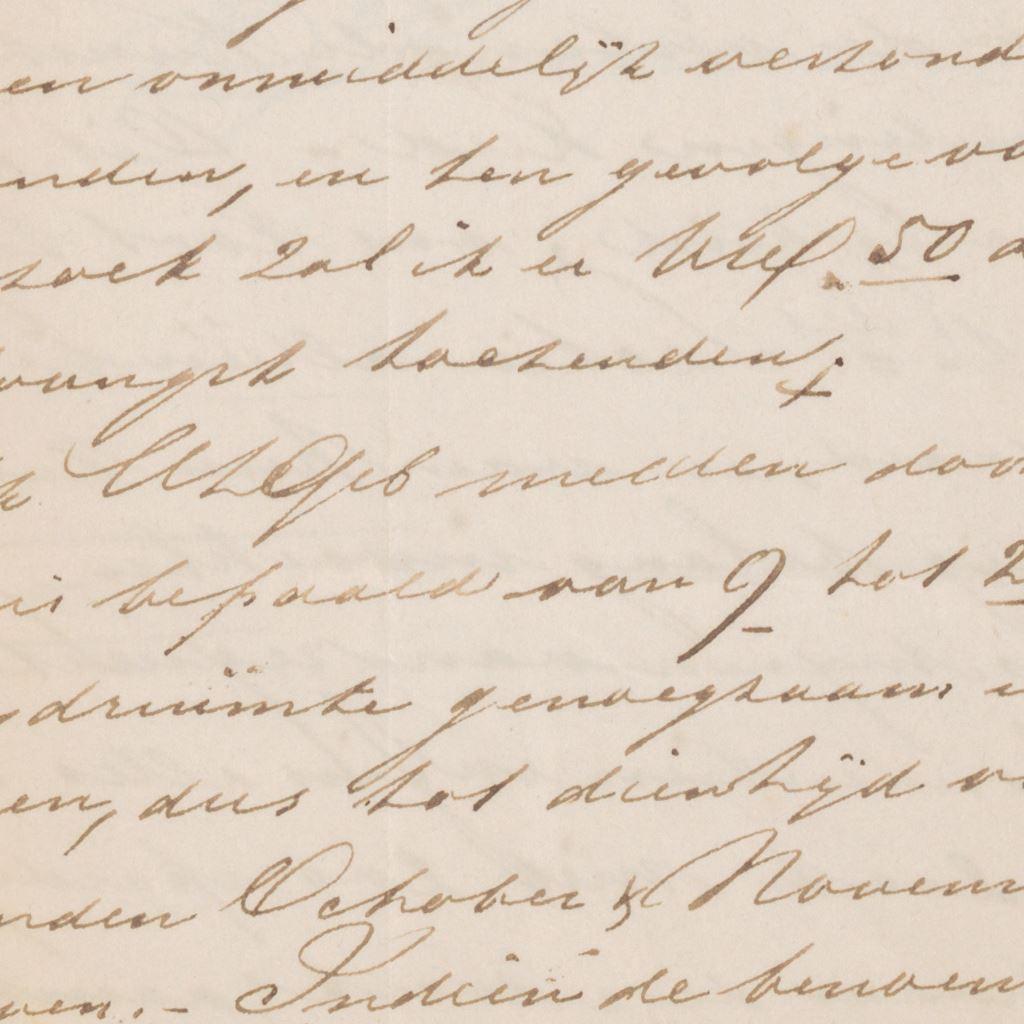 en onmiddelijk verzond
nden, en ten gevolge va
zoek zal ik er 50
vangst toezenden.
meellen door
is bepaald van 9 tot 2
druimte genoegzaam
en, dus tot dien tijd
nden October & Novem
ven. – Indien de benoem